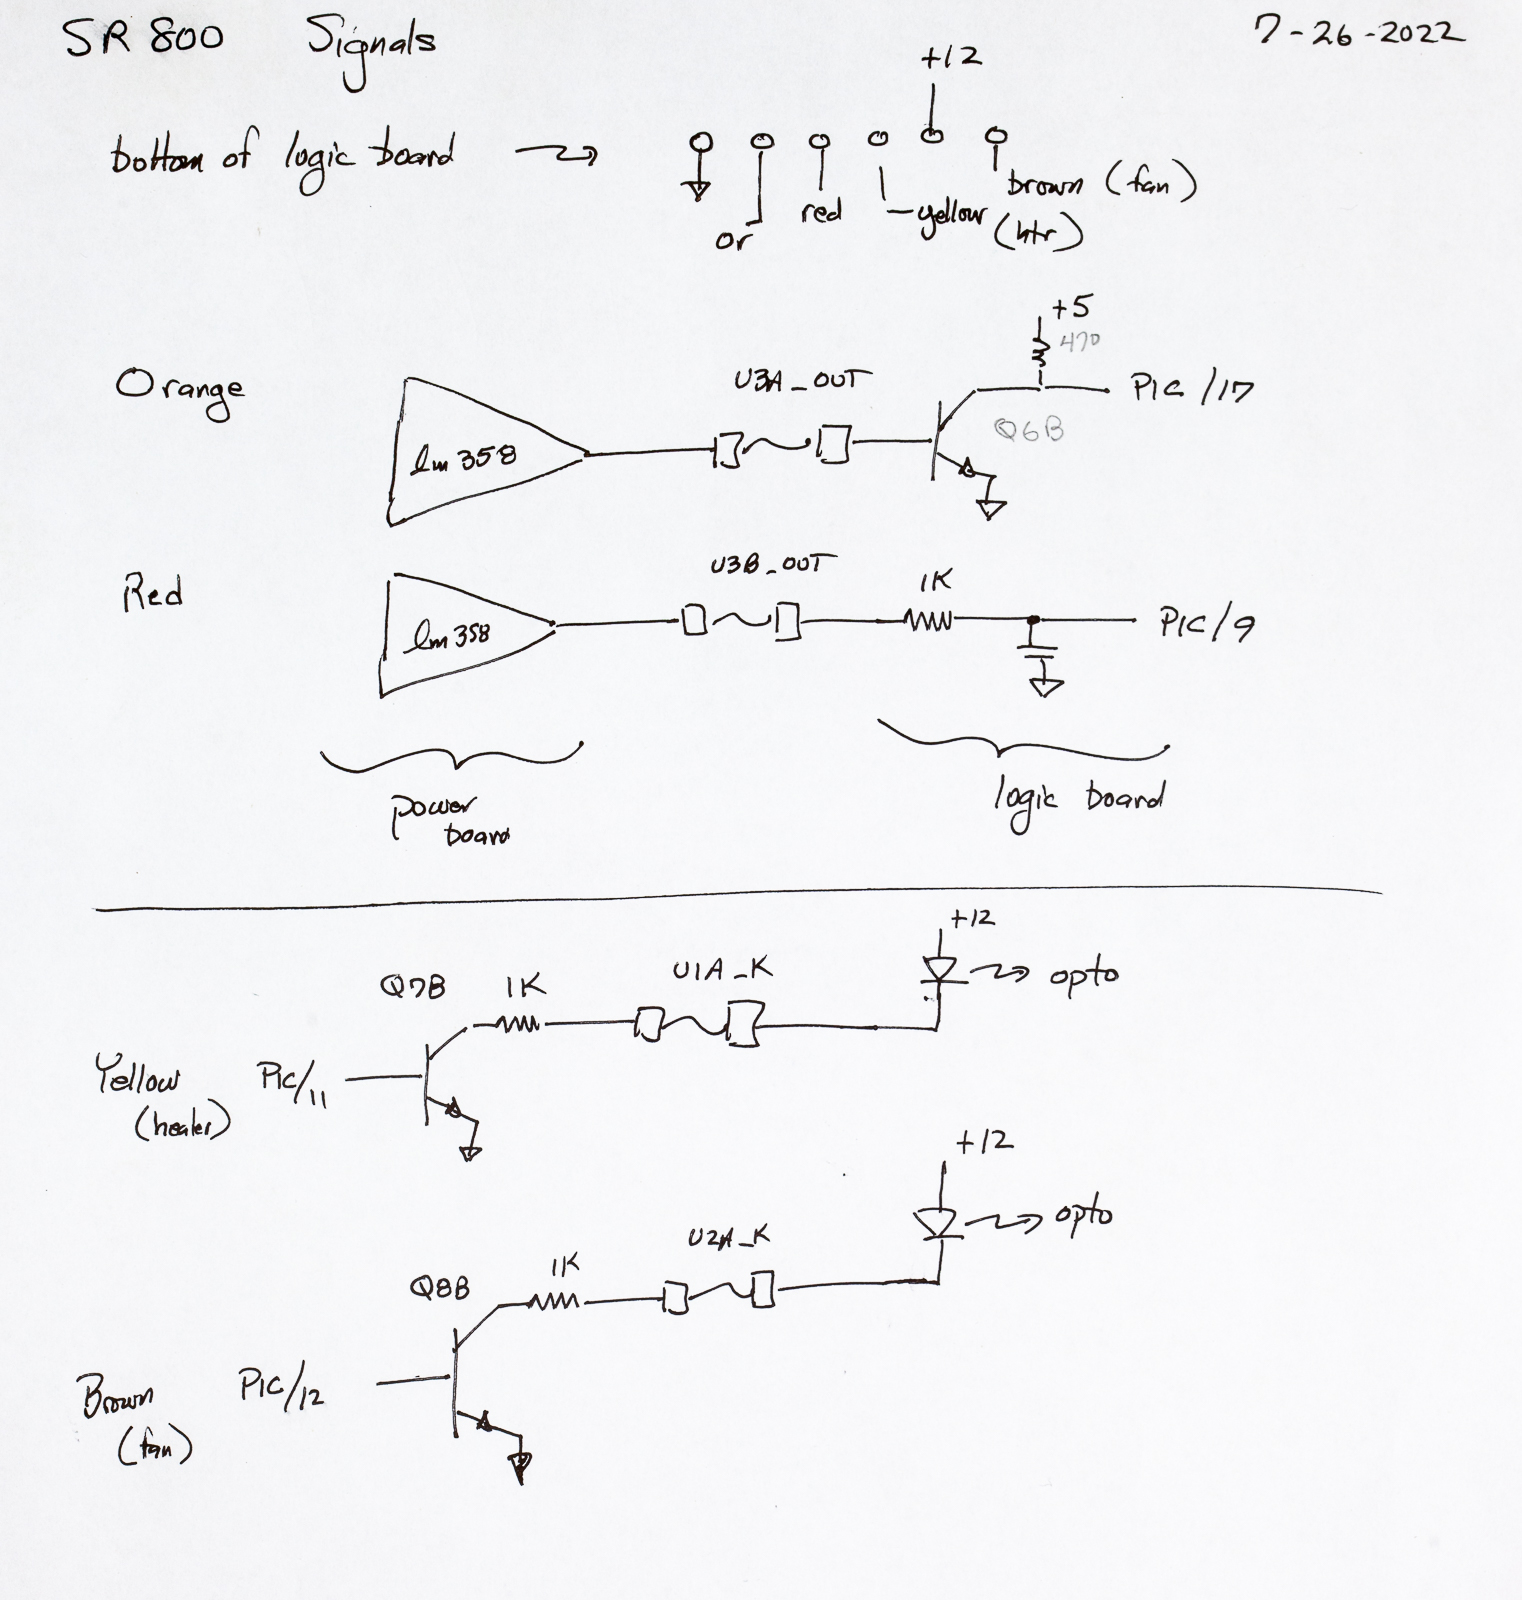 SR 800 Signals
7-26-2022
+12
bottom of logic board
brown (fan)
or
red
yellow (htr)
+5
470
Orange
U3A_OUT
PIC /17
Q6B
lm 358
U3B_OUT
Red
1K
PIC/9
lm 358
power
board
logic board
+12
Q7B
1K
U1A_K
opto
Yellow
(heater)
PIC/11
+12
U2A_K
opto
1K
Q8B
Brown
(fan)
PIC/12